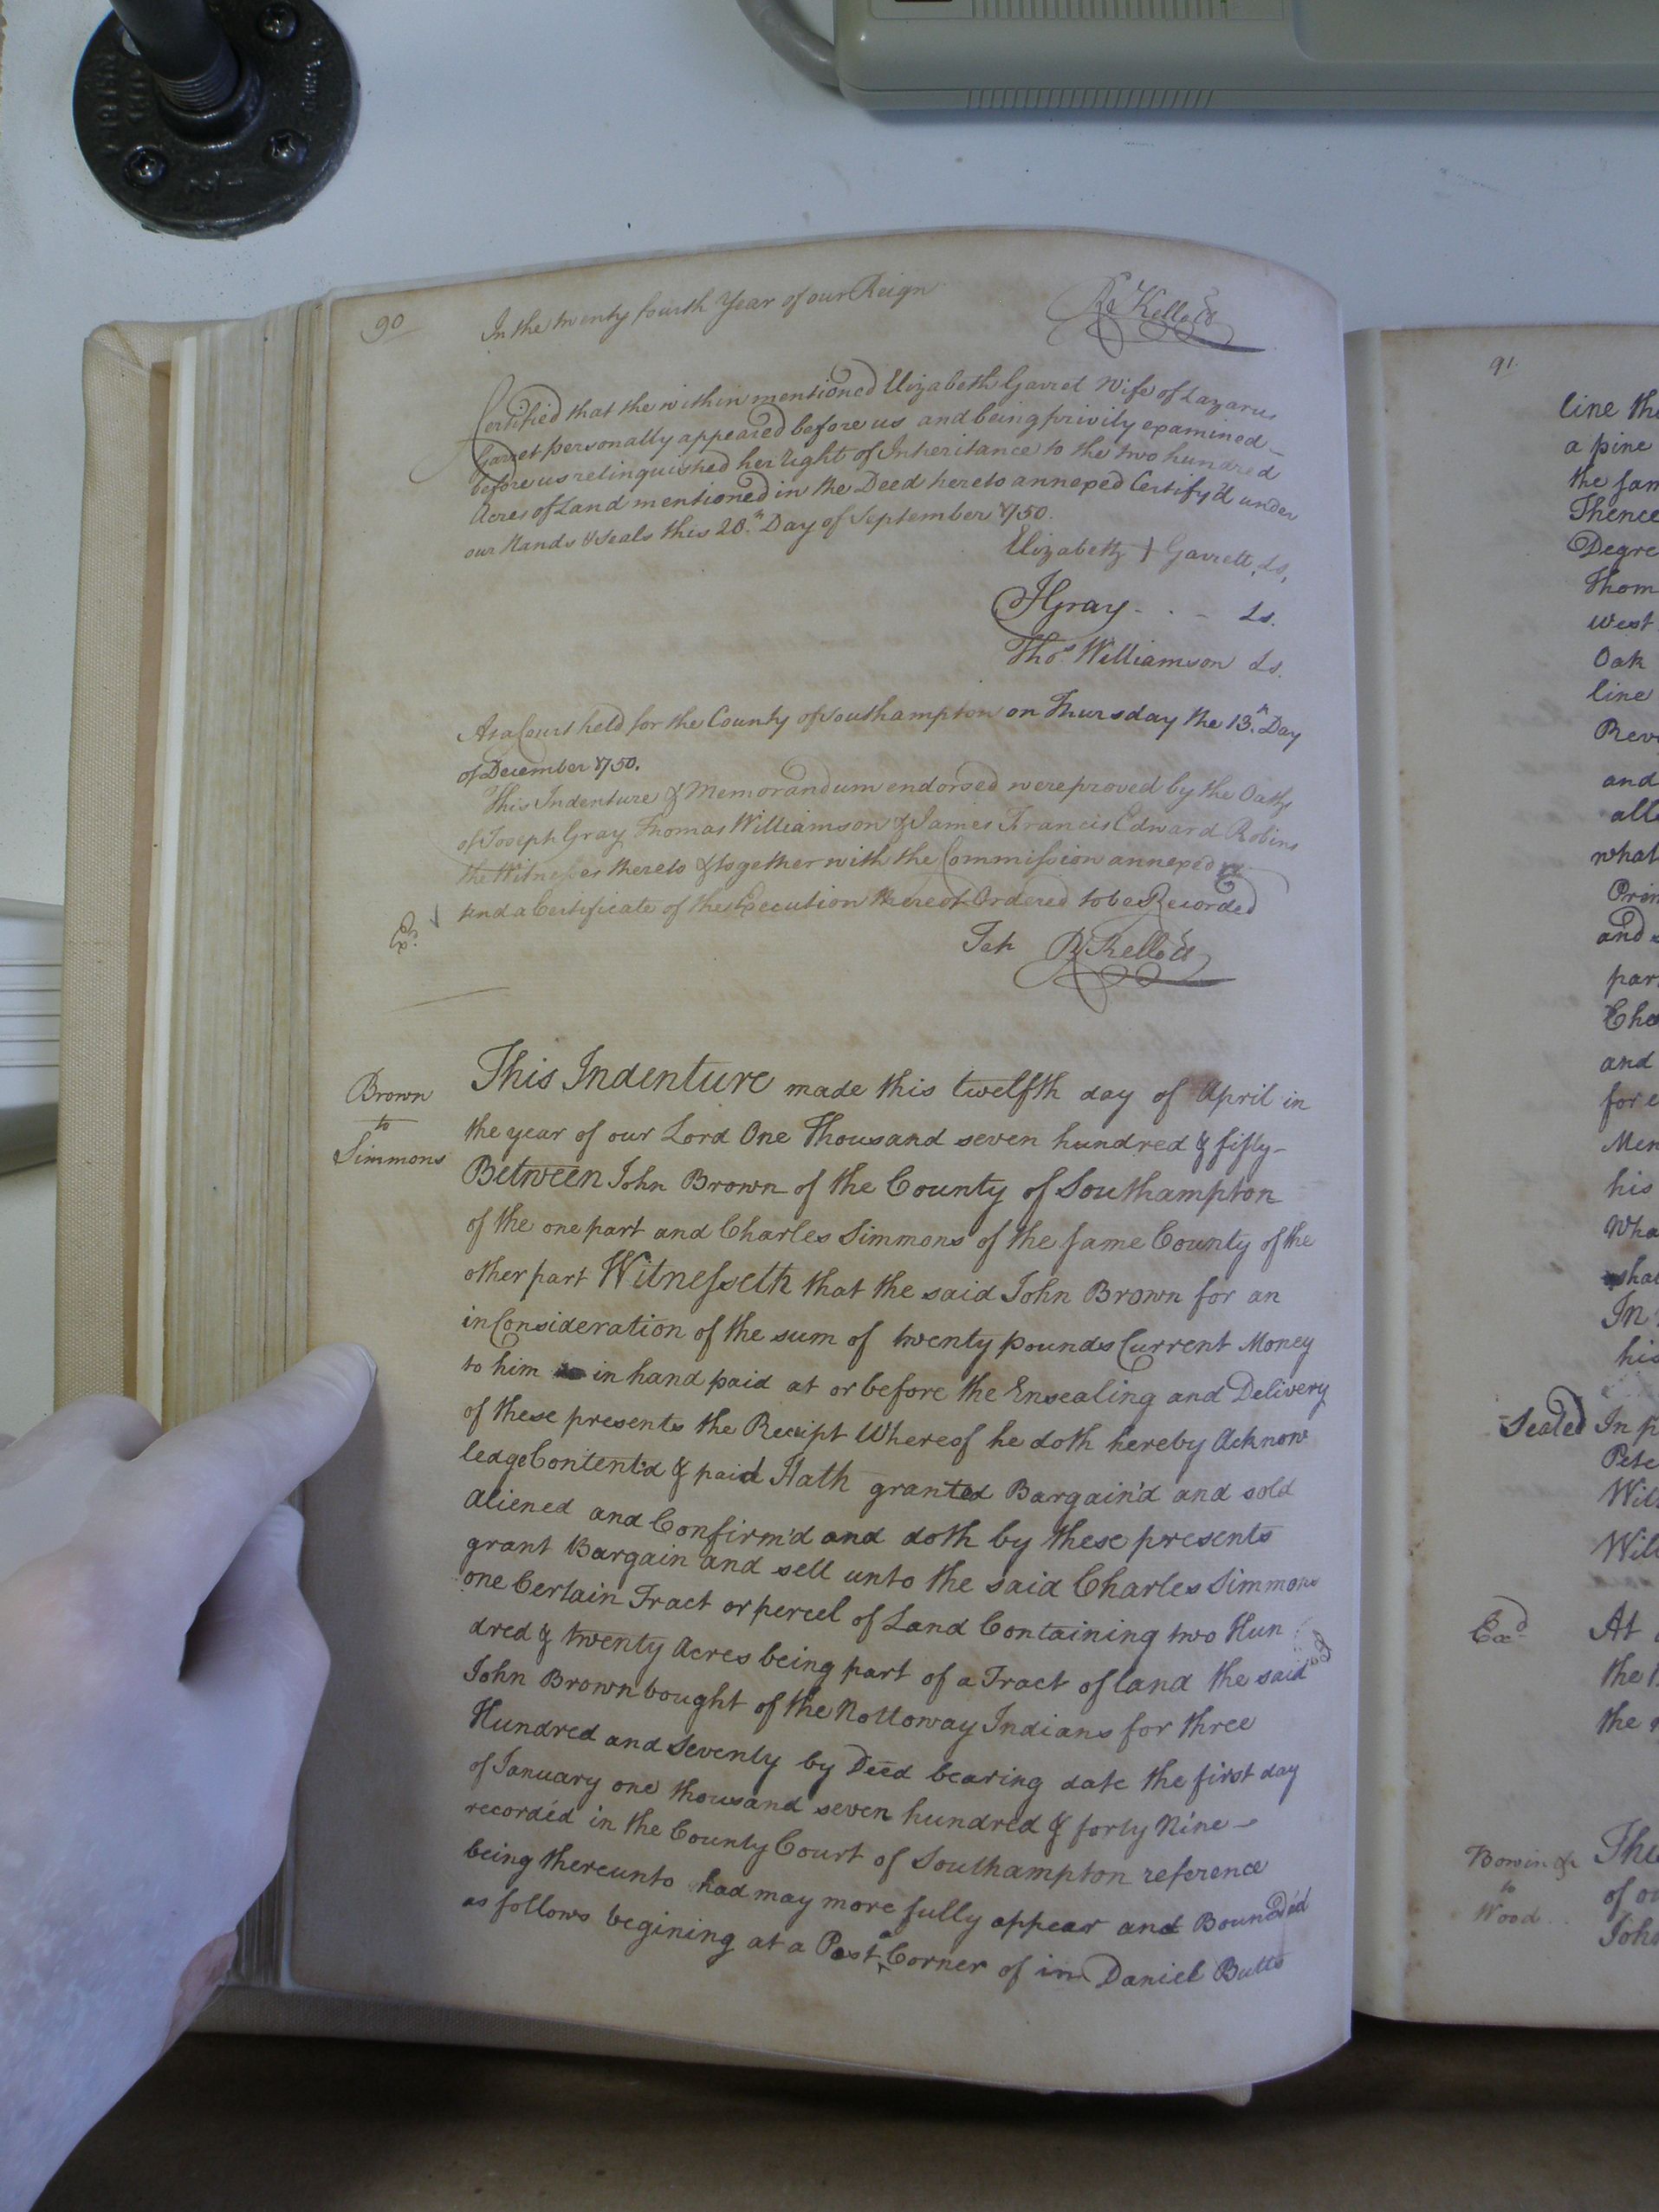 90
In the twenty fourth Year of our Reign
Certified that the within mentioned Elizabeth Garret Wife of Lazarus
Garret personally appeared before us and being privily examined
before us relinquished her Right of Inheritance to the two hundred
Acres of Land mentioned in the Deed hereto annexed Certify'd under
our Hands & Seals this 28th Day of September 1750.
Elizabeth + Garrett Ls,
JGray - . - Ls.
Thos. Williamson Ls.
At a Court held for the County of Southampton on Thursday the 13th Day
of December 1750.
This Indenture & Memorandum endorsed were proved by the Oaths
of Joseph Gray Thomas Williamson & James Francis Edward Robins
the Witnesses thereto & together with the Commission annexed
and a Certificate of the Execution thereof Ordered to be Recorded
Brown
to
Simmons
This Indenture made this twelfth day of April in
the year of our Lord One Thousand seven hundred & fifty-
Between John Brown of the County of Southampton
of the one part and Charles Simmons of the same County of the
other part Witnesseth that the said John Brown for an
in Consideration of the sum of twenty pounds Current Money
to him in hand paid at or before the Ensealing and Delivery
of these presents the Receipt Whereof he doth hereby Acknow
ledge Content'd & paid Hath granted Bargain'd and sold
aliened and Confirm'd and doth by these presents
grant Bargain and sell unto the said Charles Simmons
one Certain Tract or percel of Land Containing two Hun
dred & twenty Acres being part of a Tract of land the said
John Brown bought of the Nottoway Indians for three
Hundred and Seventy by Deed bearing date the first day
of January one thousand seven hundred & forty Nine
recorded in the County Court of Southampton reference
being thereunto had may more fully appear and Bounded
as follows begining at a Post a Corner of in Daniel Butts
91.
line the
a pine
the sam
Thence
Degre
Thom
West
Oak
line
Rev
and
all
what
Prem
and
par
Cha
and
for e
Men
his
Wha
shal
In
his
Sealed In p
Pete
Wil
Will
Exd
At
the
the
Bowin &c
to
Wood
The
of ou
John